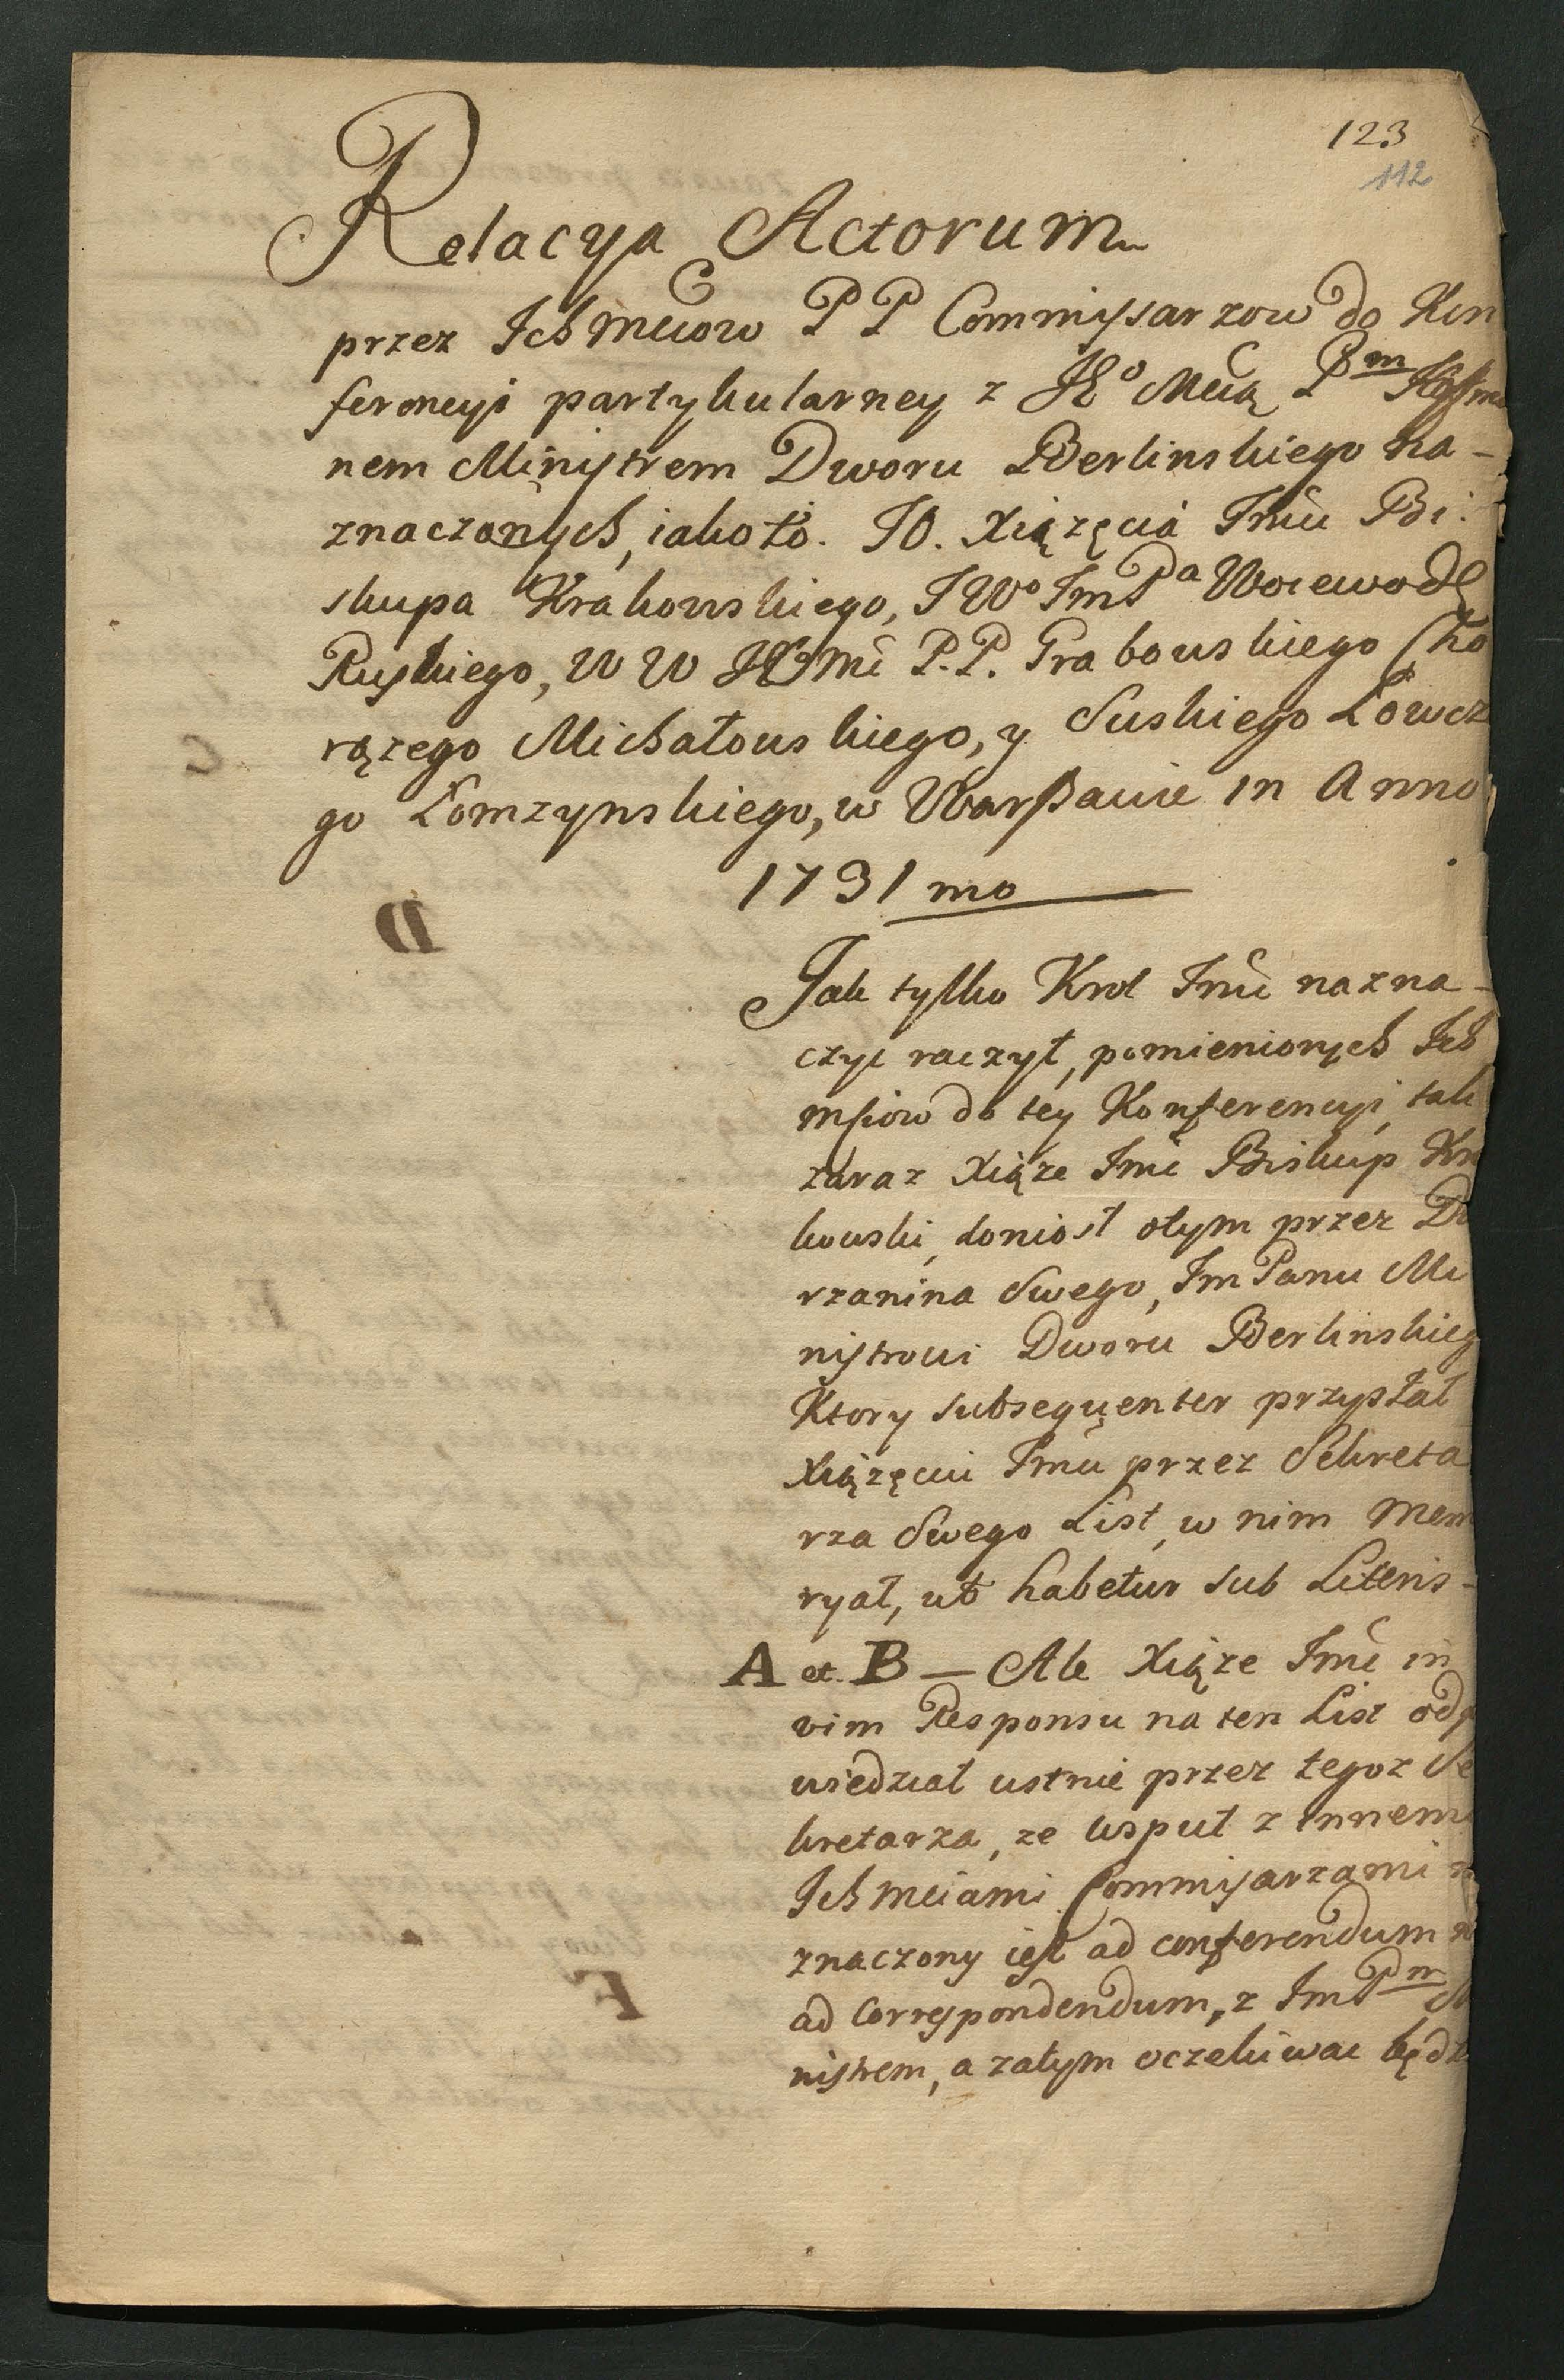 123
112
Relacya Actorum
przez Ichmciow P P Commissarzow do Kon
ferencyi partykularney z JE° Mcią Pm Hoffma
nem Ministrem Dworu Berlinskiego na-
znaczonych, iako to. JO. Xiązęcia Jmci Bi:
skupa Krakowskiego, J W° JmPa Woiewody
Ruskiego, W W Ich Mc P. P. Grabowskiego Cho
rązego Michałowskiego, y Suskiego Łowcze
go Łomzynskiego, w Warszawie in Anno
1731 mo
Jak tylko Krol Jmc nazna-
czyc raczył, pomienionych Ich
mściow do tey Konferencyi, tak
zaraz Xiąze Jmc Biskup Kra
kowski, doniosł otym przez Dw
rzanina Swego, Jm Panu Mi
nistrowi Dworu Berlinskieg
Ktory subsequenter przysłał
Xiązęciu Jmci przez Sekreta
rza Swego List, w nim Mem
ryał, ut habetur sub Literis-
A et B — Ale Xiąze Jmc in
vim Responsu na ten List odp
wiedział ustnie przez tegoz Se
kretarza, ze wsp­uł z innemi
Ichmciami Commisarzami n
znaczony iest ad conferendum n
ad Correspondendum, z JmPm M
nistrem, a zatym oczekiwac będz